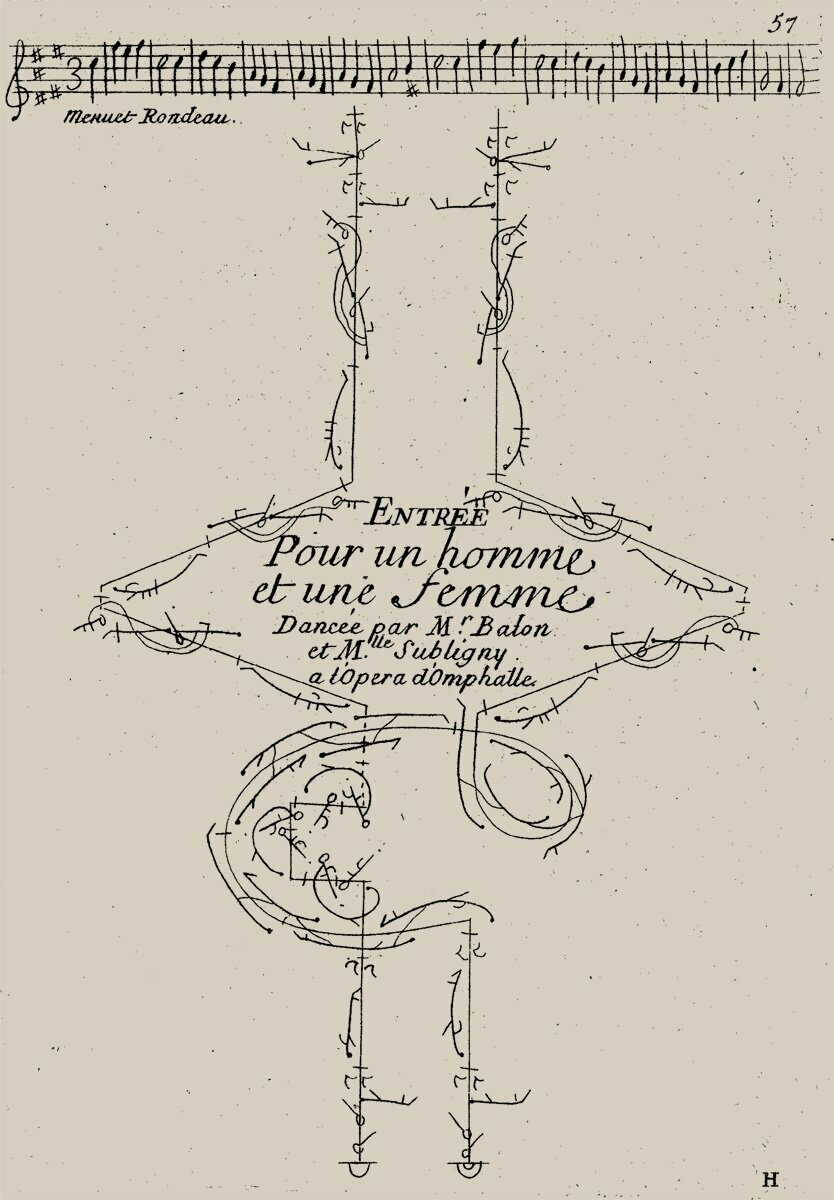 57
3
Menuet Rondeau.
ENTRÉE
Pour un homme
et une femme
Dancée par Mr. Balon
et M.lle Subligny
a l'Opera d'Omphalle.
H